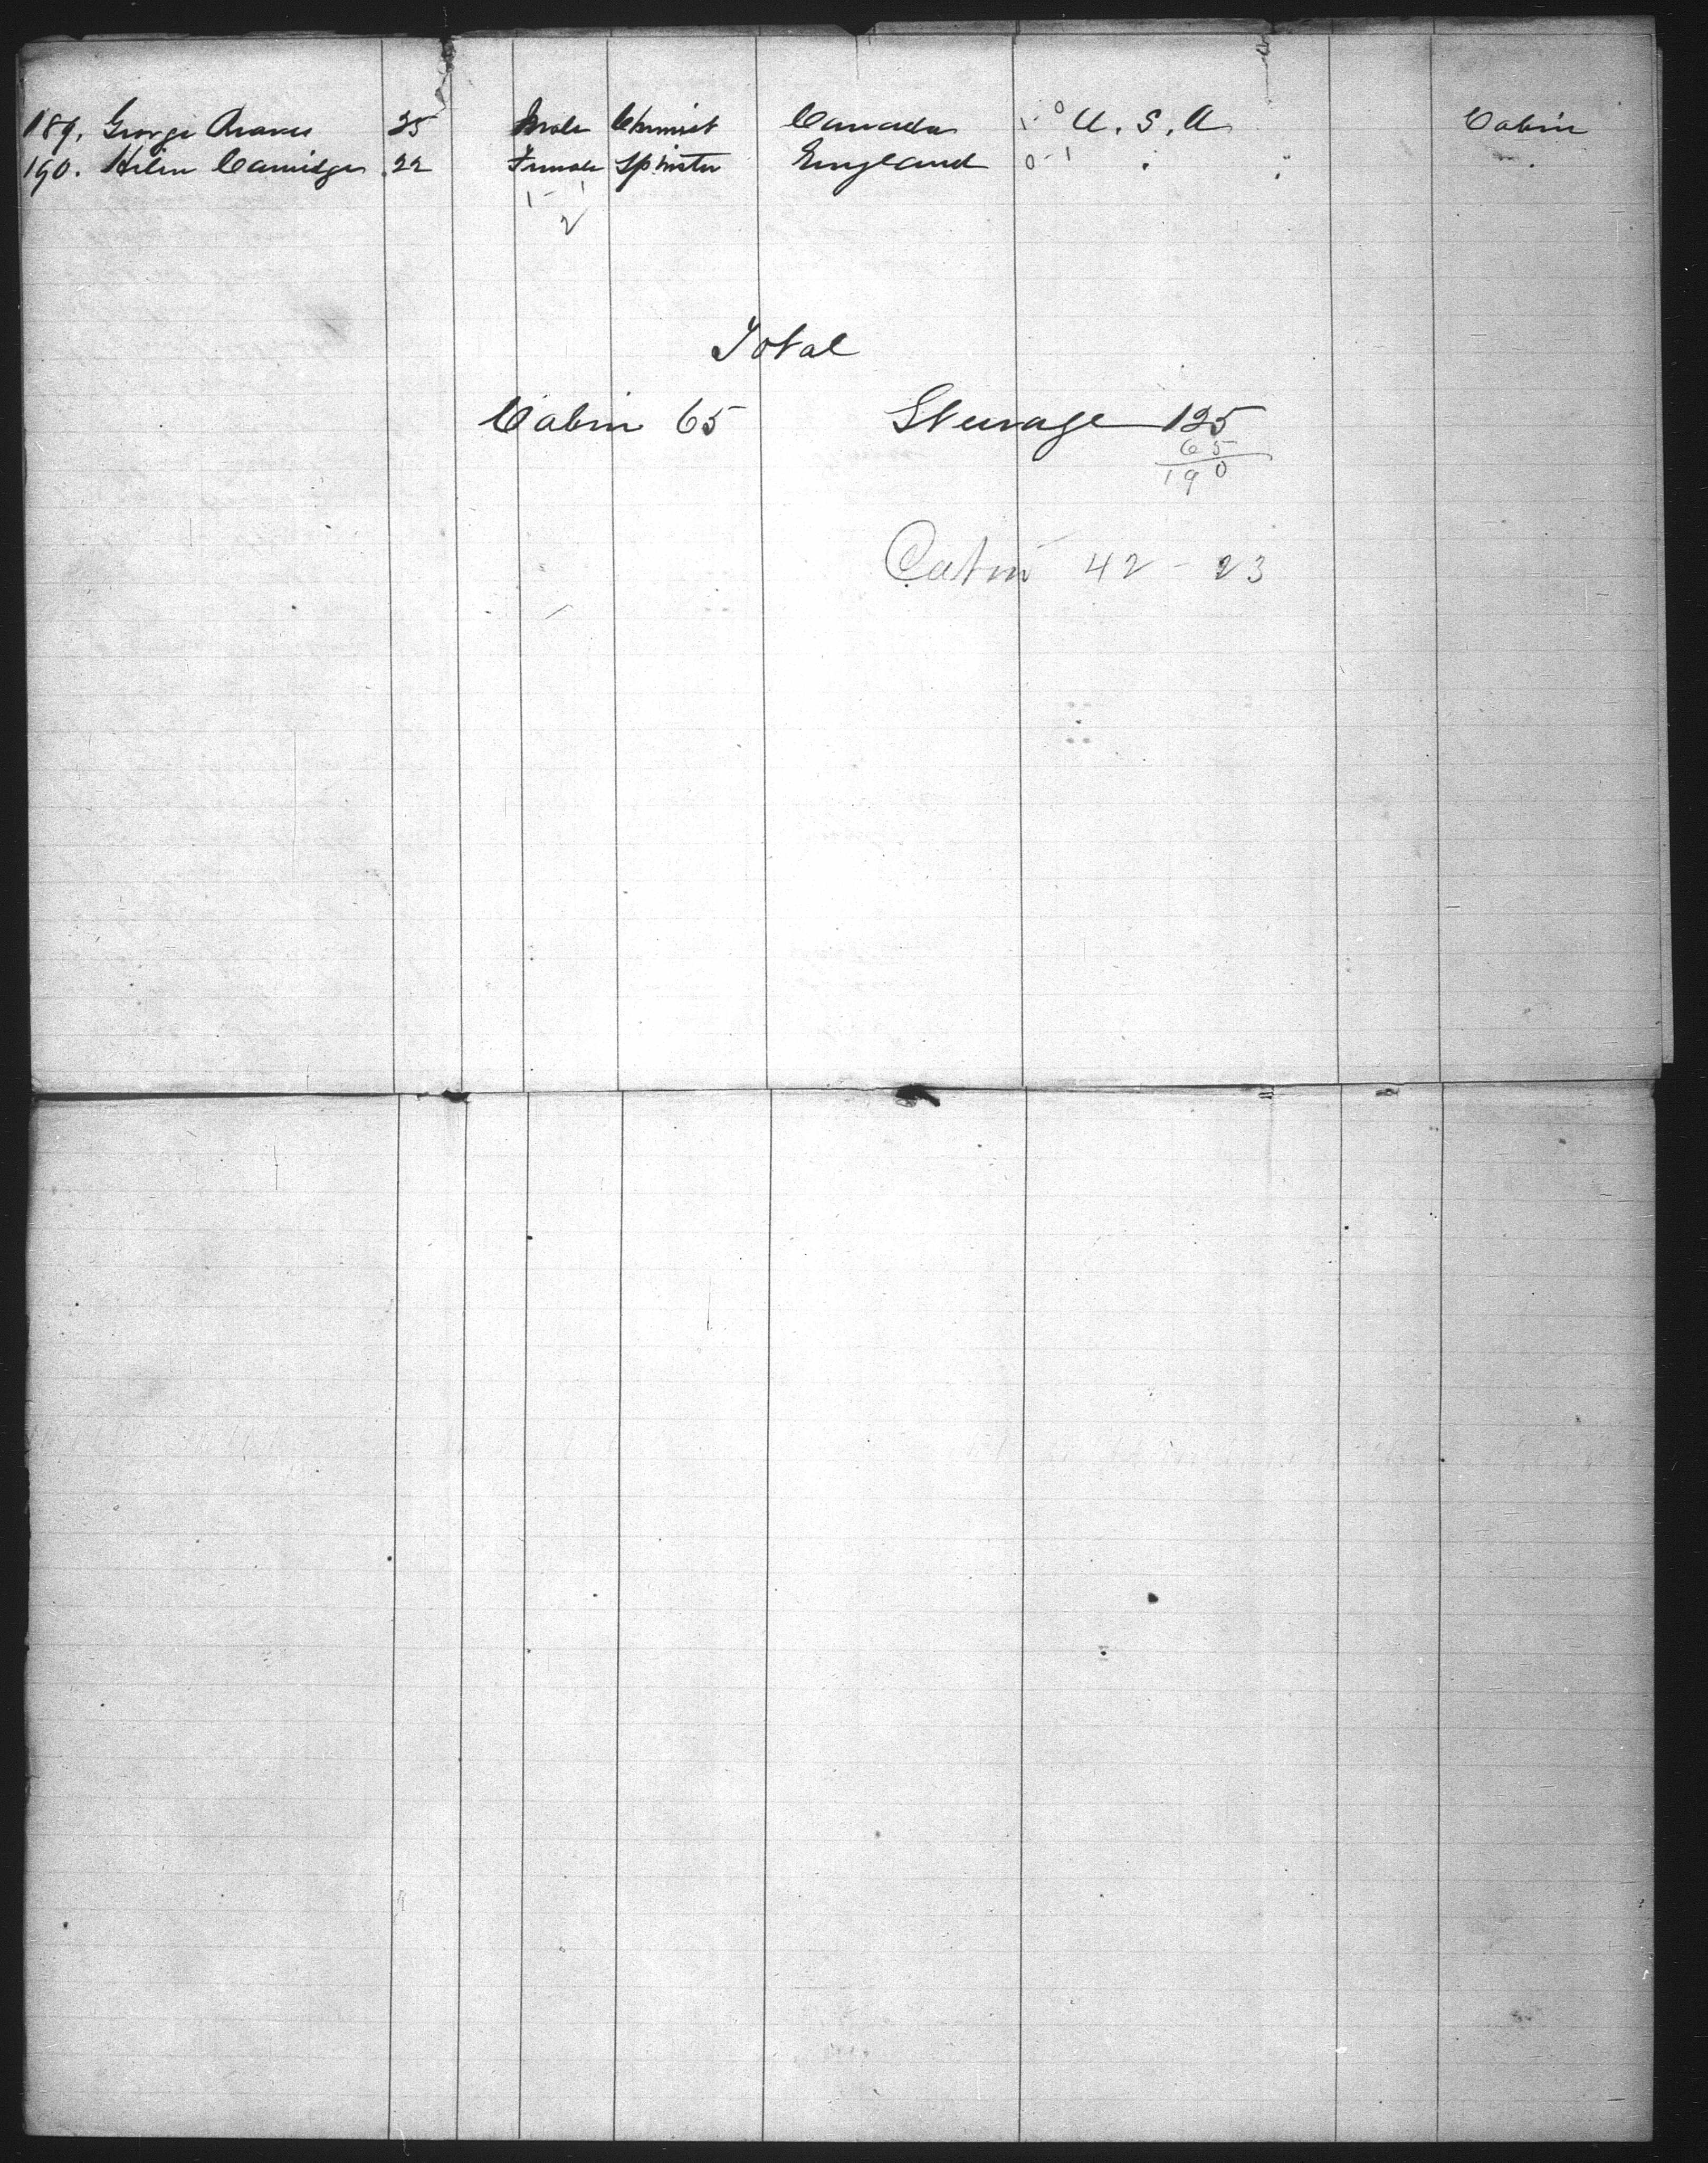 189. George Graves 25 Male Chemist Canada 1-0 U. S. A Cabin
190. Helen Camidge 22 Female Spinster England 0-1 " " "
1 - 1
2
Total
Cabin 65 Steerage 125
65
190
Cabin 42 - 23